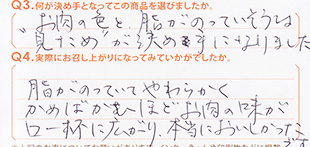 Q3.何が決め手となってこの商品を選びましたか。
お肉の色と、脂がのっていそうな
"見ため"が決め手になりました
Q4.実際にお召し上がりになってみていかがでしたか。
脂がのっていてやわらかく
かめばかむほどお肉の味が
口一杯に広がり、本当においしかった
です